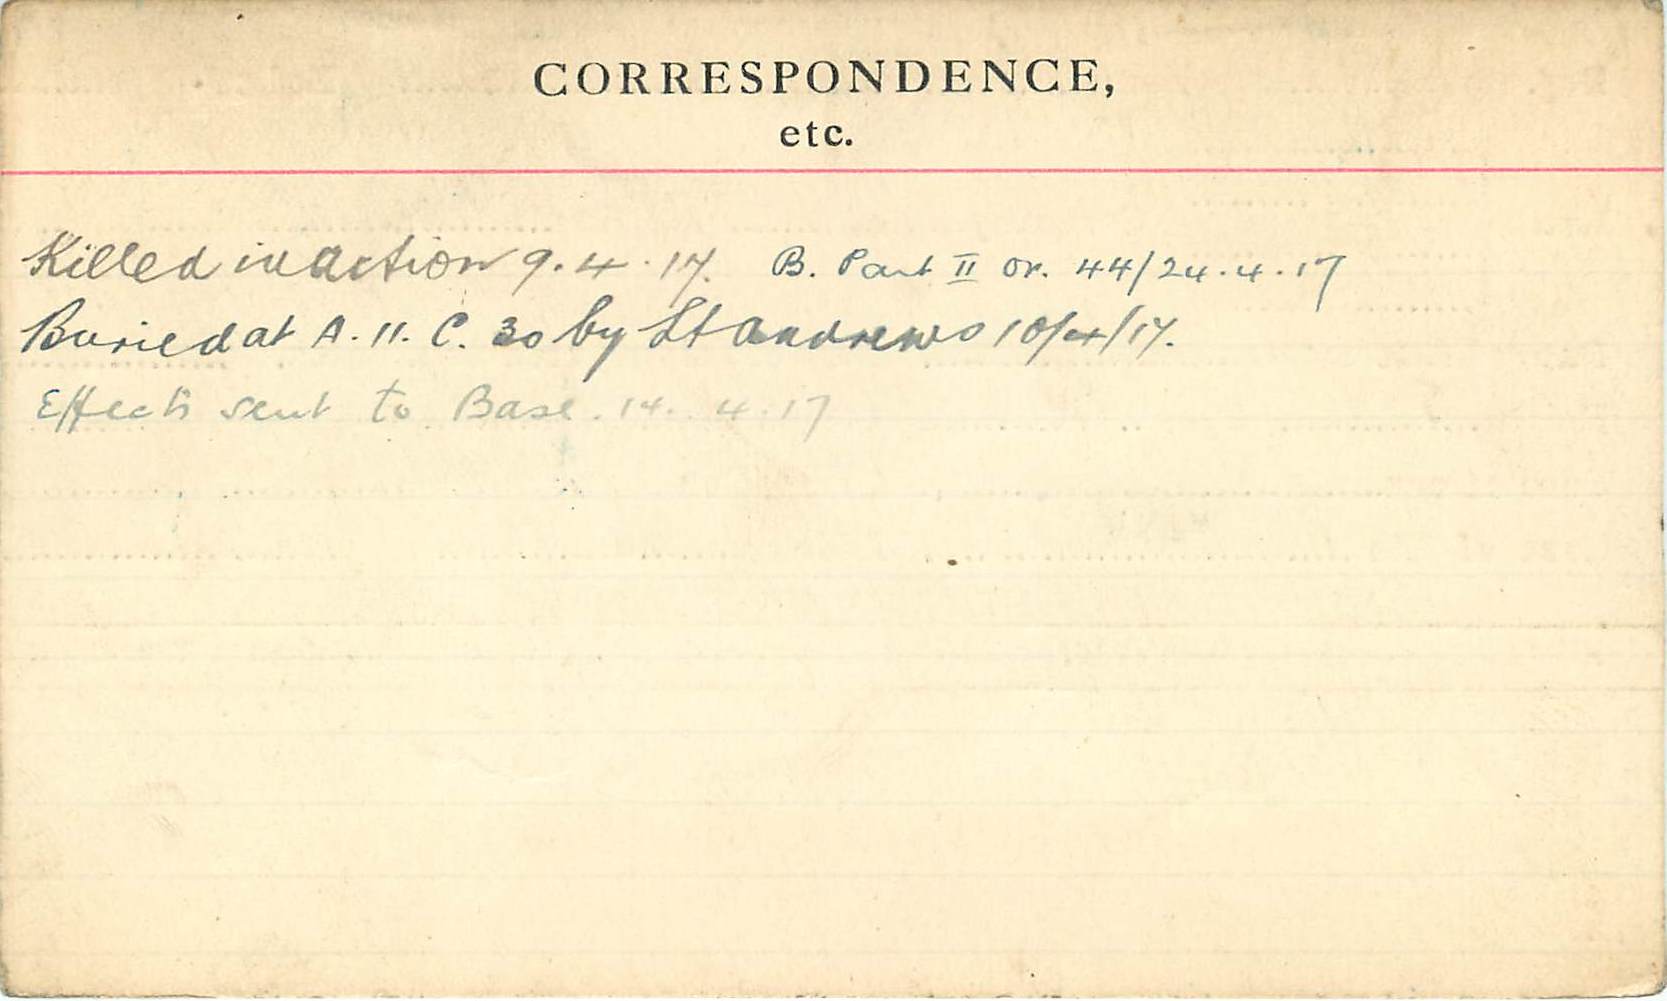 CORRESPONDENCE,
etc.
Killed in action 9.4.17. B. Part II Or. 44/24.4.17
Buried at A.11.C.30 by Lt Andrews 10/4/17.
Effects sent to Base. 14.4.17